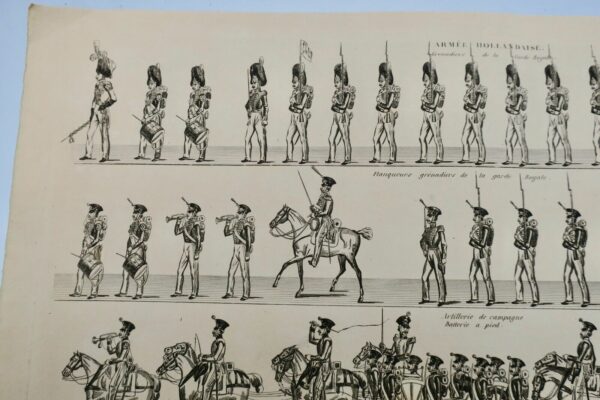 ARMÉE HOLLANDAISE.
Grenadiers de la Garde Royale
Flanqueurs grenadiers de la garde Royale.
Artillerie de campagne
Batterie à pied